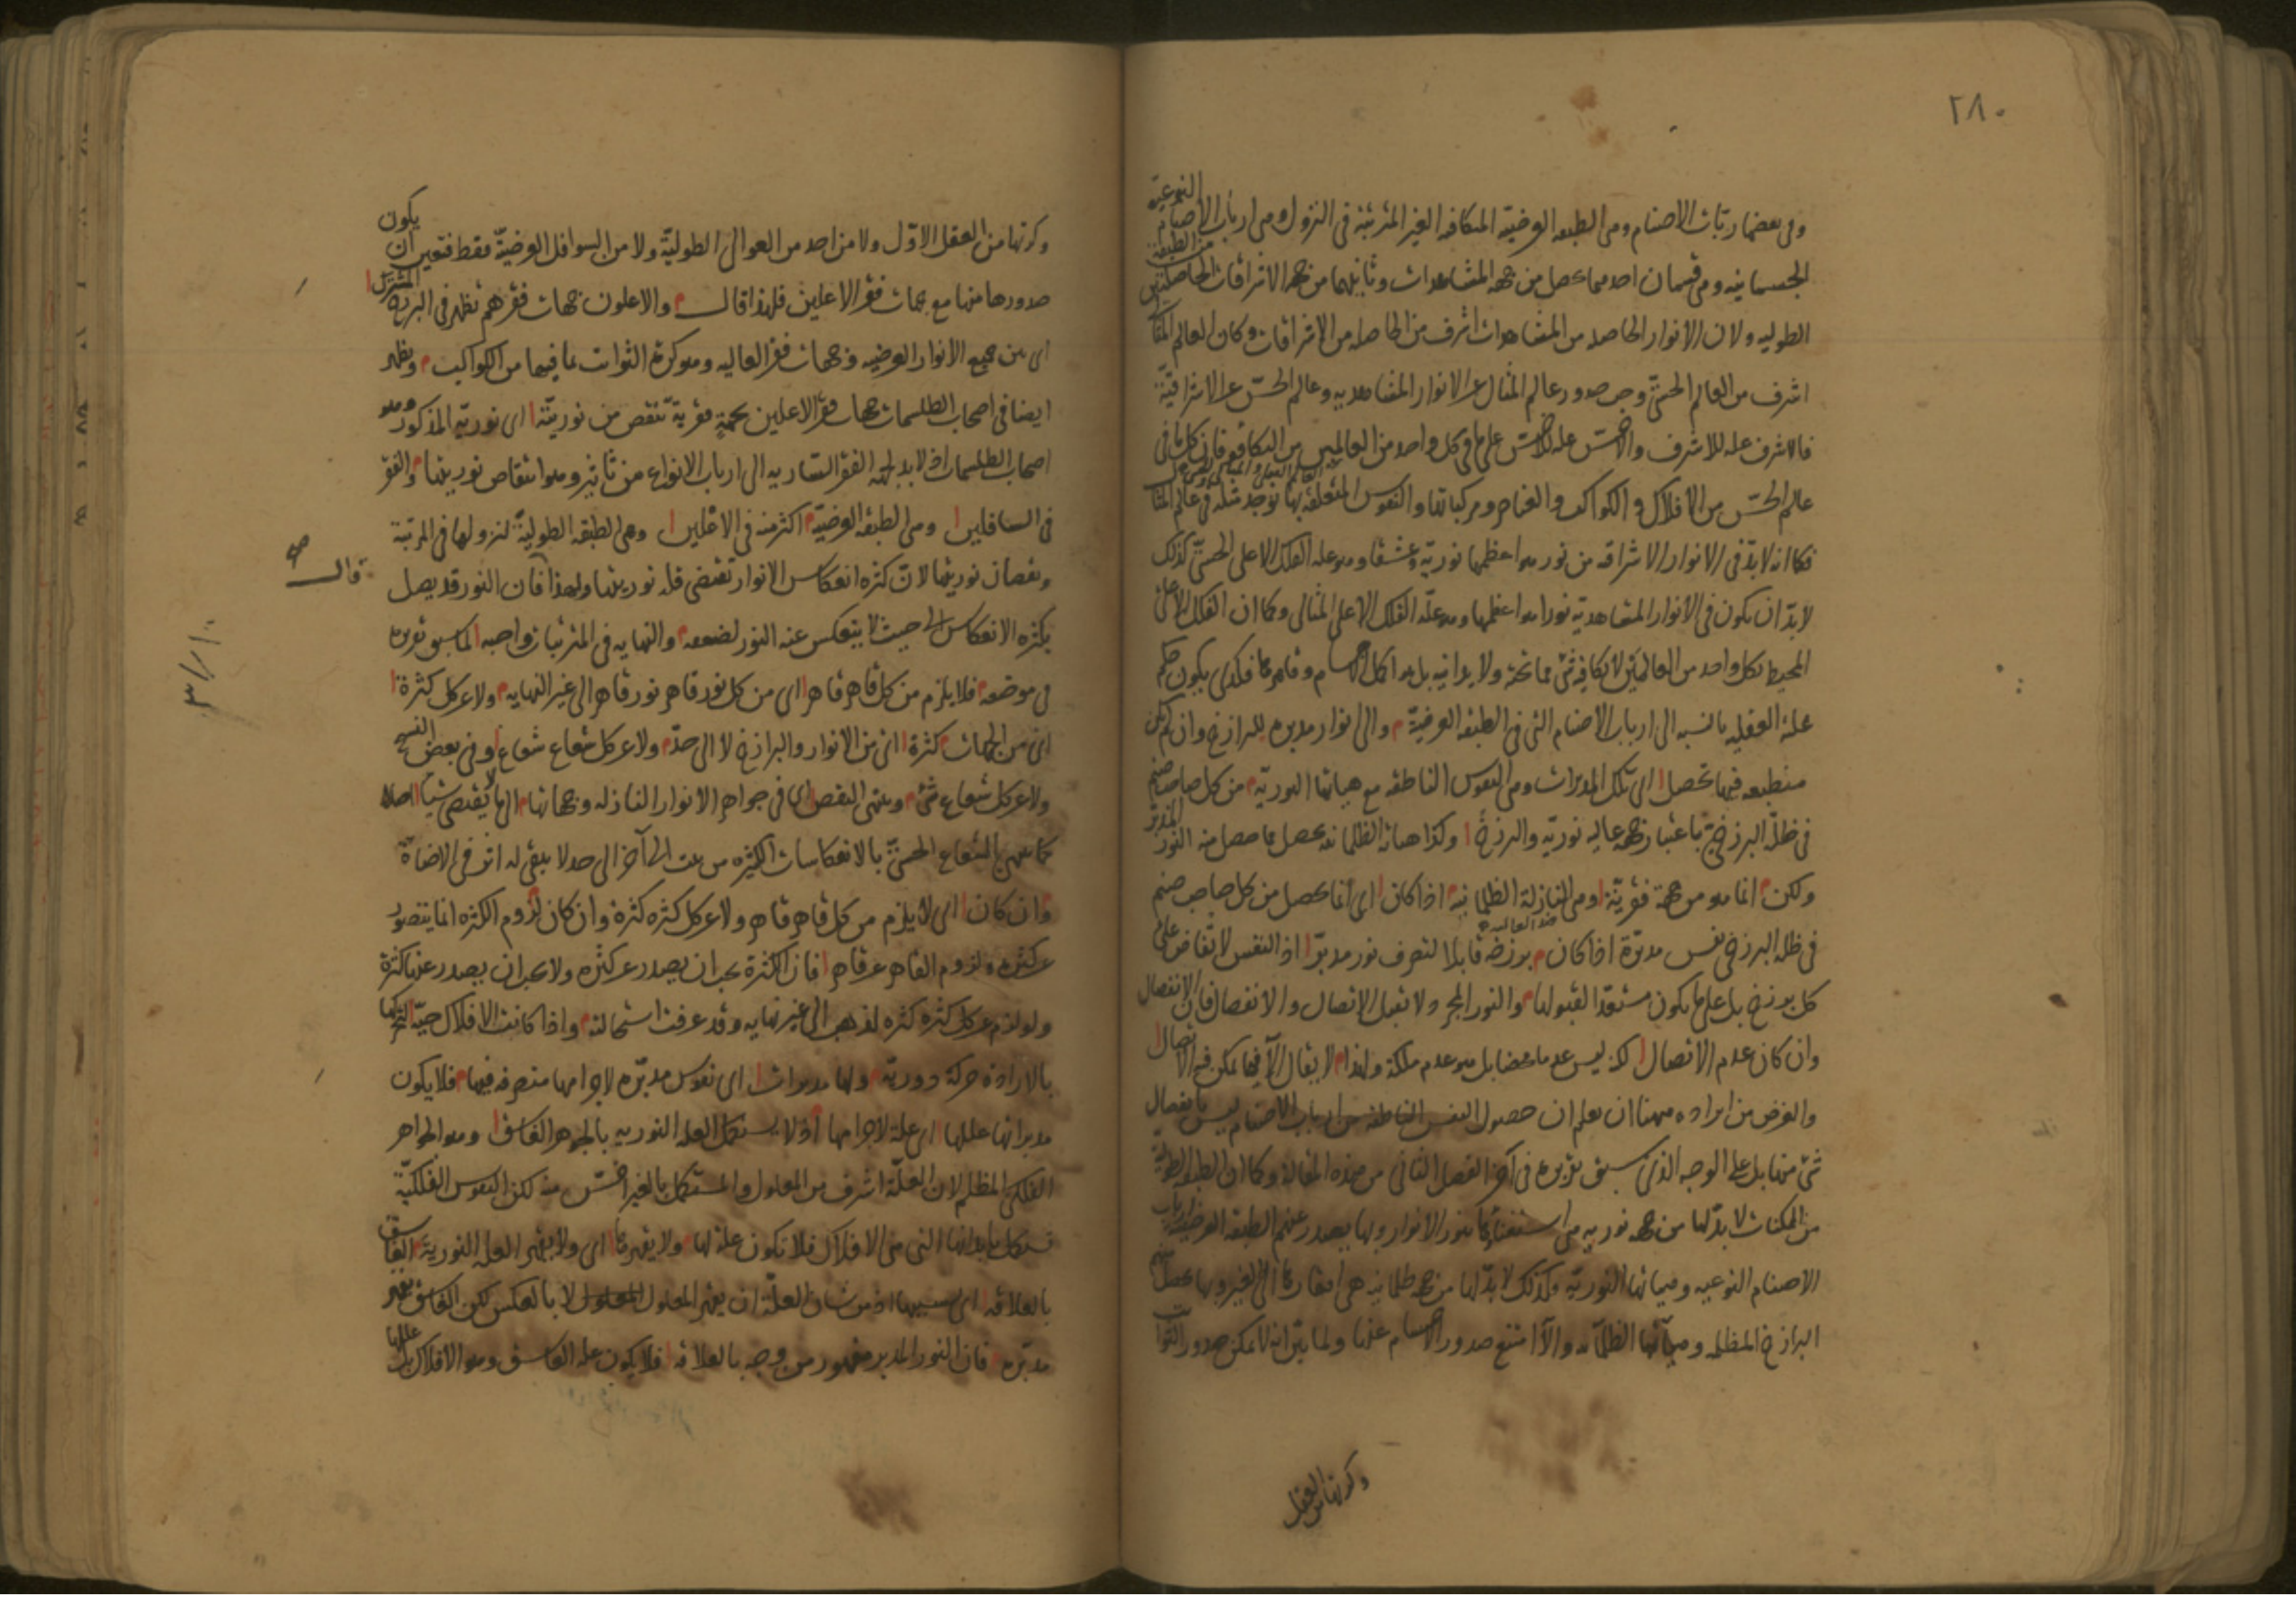 ٢٨٠
وفي بعضها ربات الاصنام وهى الطبقه العرضيّة المتكافه الغير المترتبة فى النزول وهى ارباب الاصنام النوعيّة
الجسمانيه وهى قسمان احدهما يحصل من جهة المشاهدات وثانيهما من جهة الاشراقات الحاصلتين من الطبقة
الطوليه ولان الانوار الحاصله من المشاهدات اشرف من الحاصله من الاشراقات وكان العالم المثا
اشرف من العالم الحسّى وجب صدور عالم المثال عن الانوار المشاهديه وعالم الحسّ عن الاشراقيّة
فالاشرف علة للاشرف والاخسّ علة للاخسّ على ما فى كل واحد من العالمين من التكافو فان كل ما فى
عالم الحسّ من الافلاك و الكواكب و العناصر ومركباتها و النفوس المتعلقه بها يوجد مثله فى عالم المثا
فكما انه لا بدّ فى الانوار الاشراقه من نور هو اعظمها نوريّة وعشقا وهو علة الفلك الاعلى الحسّى كذلك
لا بدّ ان يكون فى الانوار المشاهديّة نور هو اعظمها وهو علّة الفلك الاعلى المثالى وكما ان الفلك الاعلى
المحيط بكل واحد من العالمين لا يكافيه شئ مما تحته ولا يدانيه بل هو اكمل الاجسام وقاهرها فكذلك يكون حكم
علته العقليه بالنسبه الى ارباب الاصنام التى فى الطبقه العرضيّة والى انوار مدبره للبرازخ وان لم يكن
منطبعه فيها تحصل اى تلك المدبرات وهى النفوس الناطقه مع هياتها النوريّة من كل صاحب صنم
فى ظلّه البرزخى باعتبار جهة عاليه نوريّه والبرزخ وكذا هياته الظلمانيه يحصل مما حصل منه النور المدبّر
ولكن انما هو من جهة فقريّة وهى النازلة الظلمانيه اذا كان اى انما يحصل من كل صاحب صنم
فى ظله البرزخى نفس مدبّرة اذا كان برزخه قابلا لتصرف نور مدبّر اذ النفس لا تفاض على
كل برزخ بل على ما يكون مستعدّا لقبولها والنور المجرد لا تقبل الاتصال والانفصال فان الانفصال
وان كان عدم الاتصال لكنه ليس عدما محضا بل هو عدم ملكة ولهذا لا يقال الّا فيما يمكن فيه الاتصال
والغرض من ايراده ههنا ان يعلم ان حصول النفس الناطقه من ارباب الاصنام ليس بانفصال
شئ منها بل على الوجه الذى سبق تقريره فى آخر الفصل الثانى من هذه المقالة وكما ان الطبقه الطوليّة
من الممكنات لا بدّ لها من جهه نوريه هى استغناؤها بنور الانوار وبها يصدر عنهم الطبقه العرضيّة ارباب
الاصنام النوعيه وهياتها النوريّه وكذلك لا بدّ لها من جهه ظلمانيه هى افتقارها الى الغير وبها يحصل منهم
البرازخ المظلمه وهيآتها الظلمانيه والّا امتنع صدور الاجسام عنها ولما تبيّن انه لا يمكن صدور الثوابت
وكرتها من العقل
وكرتها من العقل الاوّل ولا من احد من العوالى الطوليّة ولا من السوافل العرضيّة فقط فتعين ان يكون
صدورها منها مع جهات فقر الاعلين فلهذا قال والاعلون جهات فقرهم تظهر فى البرزخ المشترك
اى بين جميع الانوار العرضيه وجهات فقر العاليه وهو كرة الثوابت بما فيها من الكواكب ويظهر
ايضا فى اصحاب الطلسمات جهات فقر الاعلين بجهةٍ فقريةٍ تنقص من نوريتّه اى نوريّه المذكور وهو
اصحاب الطلسمات اذ لا بد لجهة الفقر الساريه الى ارباب الانواع من تاثير وهو انتقاص نوريتها والفقر
فى السافلين وهى الطبقه العرضيّة اكثر منه فى الاعلين وهى الطبقه الطوليّة لنزولها فى المرتبة
ونقصان نوريتها لانّ كثرة انعكاس الانوار تقتضى قلة نوريتها ولهذا فان النور قد يصل
قال صح
بكثرة الانعكاس الى حيث لا ينعكس عنه النور لضعفه والنهايه فى المترتبات واجبه لما سبق تقريره
فى موضعه فلا يلزم من كل قاهر قاهر اى من كل نور قاهر نور قاهر الى غير النهايه ولا عن كل كثرة
اى من الجهات كثرة اى من الانوار والبرازخ لا الى حدّ ولا عن كل شعاع شعاع وفى بعض النسخ
ولا عن كل شعاع شئ وينتهى النقص اى فى جواهر الانوار النازله وجهاتها الى ما لا يقتضى شيأ اصلا
كما ينتهى الشعاع الحسّى بالانعكاسات الكثيره من بيت الى آخر الى حد لا يبقى له اثر فى الاضاءة
وان كان اى لا يلزم من كل قاهر قاهر ولا عن كل كثره كثرة وان كان لزوم الكثره انما يتصور
عن كثره ولزوم القاهر عن قاهر فان الكثرة يجب ان يصدر عن كثره ولا يجب ان يصدر عنها كثرة
ولو لزم عن كل كثره كثره لذهب الى غير نهايه وقد عرفت استحالته واذا كانت الافلاك حيّة لتحركها
بالارادة حركة دوريّه ولها مدبرات اى نفوس مدبّره لاجرامها متصرفه فيها فلا يكون
مدبراتها عللها اى علة لاجرامها اذ لا يستكمل العله النوريه بالجوهر الغاسق وهو الجواهر
الفلكى المظلم لان العلّة اشرف من المعلول والمستكمل بالغير اخسّ منه لكن النفوس الفلكيّة
تستكمل بابدانها التى هى الافلاك فلا تكون علة لها ولا يقهرها اى ولا يقهر العله النوريّة الغاسق
بالعلاقه اى بسببها اذ من شان العلّة ان يقهر المعلول لا بالعكس لكن الغاسق يقهر
مدبّره فان النور المدبر مقهور من وجه بالعلاقه فلا يكون علة الغاسق وهو الافلاك بل عللها